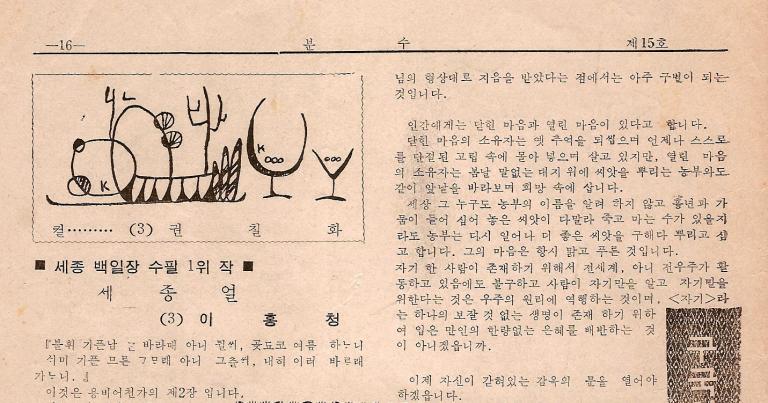 —16—
분 수
제15호
컽········· (3) 권 질 화
■ 세종 백일장 수필 1위 작 ■
세 종 얼
(3) 이 홍 청
『불휘 기픈남 바라매 아니 뮐씨, 곶됴코 여름 하느니
시미 기픈 므른 ᄀᆞ무래 아니 그츨씨, 내히 이러 바ᄅᆞ래
가느니. 』
이것은 용비어천가의 제2장 입니다.
님의 형상대로 지음을 받았다는 점에서는 아주 구별이 되는
것입니다.
인간에게는 닫힌 마음과 열린 마음이 있다고 합니다.
닫힌 마음의 소유자는 옛 추억을 되씹으며 언제나 스스로
를 단절된 고립 속에 몰아 넣으며 살고 있지만, 열린 마음
의 소유자는 봄날 말없는 대지 위에 씨앗을 뿌리는 농부와도
같이 앞날을 바라보며 희망 속에 삽니다.
세상 그 누구도 농부의 이름을 알려 하지 않고 흉년과 가
뭄이 들어 심어 놓은 씨앗이 다말라 죽고 마는 수가 있을지
라도 농부는 다시 일어나 더 좋은 씨앗을 구해다 뿌리고 심
고 합니다. 그의 마음은 항시 맑고 푸른 것입니다.
자기 한 사람이 존재하기 위해서 전세계, 아니 전우주가 활
동하고 있음에도 불구하고 사람이 자기만을 알고 자기만을
위한다는 것은 우주의 원리에 역행하는 것이며, <자기>라
는 하나의 보잘 것 없는 생명이 존재 하기 위하
여 입은 만인의 한량없는 은혜를 배반하는 것
이 아니겠읍니까.
이제 자신이 갇혀있는 감옥의 문을 열어야
하겠읍니다.